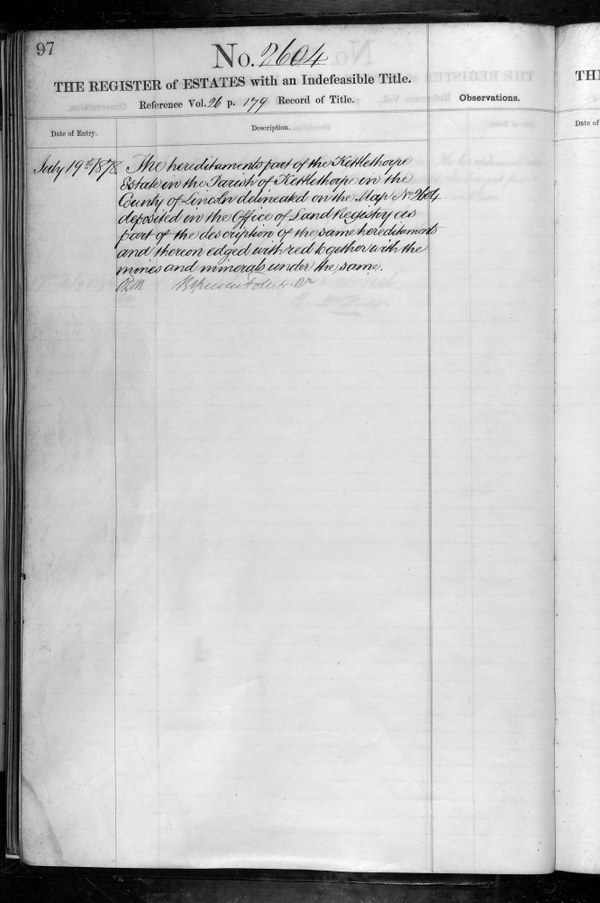 97
No. 2604
THE REGISTER of ESTATES with an Indefeasible Title.
Reference Vol. 26 p. 179 Record of Title.
Observations.
Date of Entry.
Description.
July 19th 1878
The hereditaments part of the Kettlethorpe
Estate in the Parish of Kettlethorpe in the
County of Lincoln delineated on the Map No 2604
deposited in the Office of Land Registry as
part of the description of the same hereditaments
and thereon edged with red together with the
mines and minerals under the same.
TH
Date of